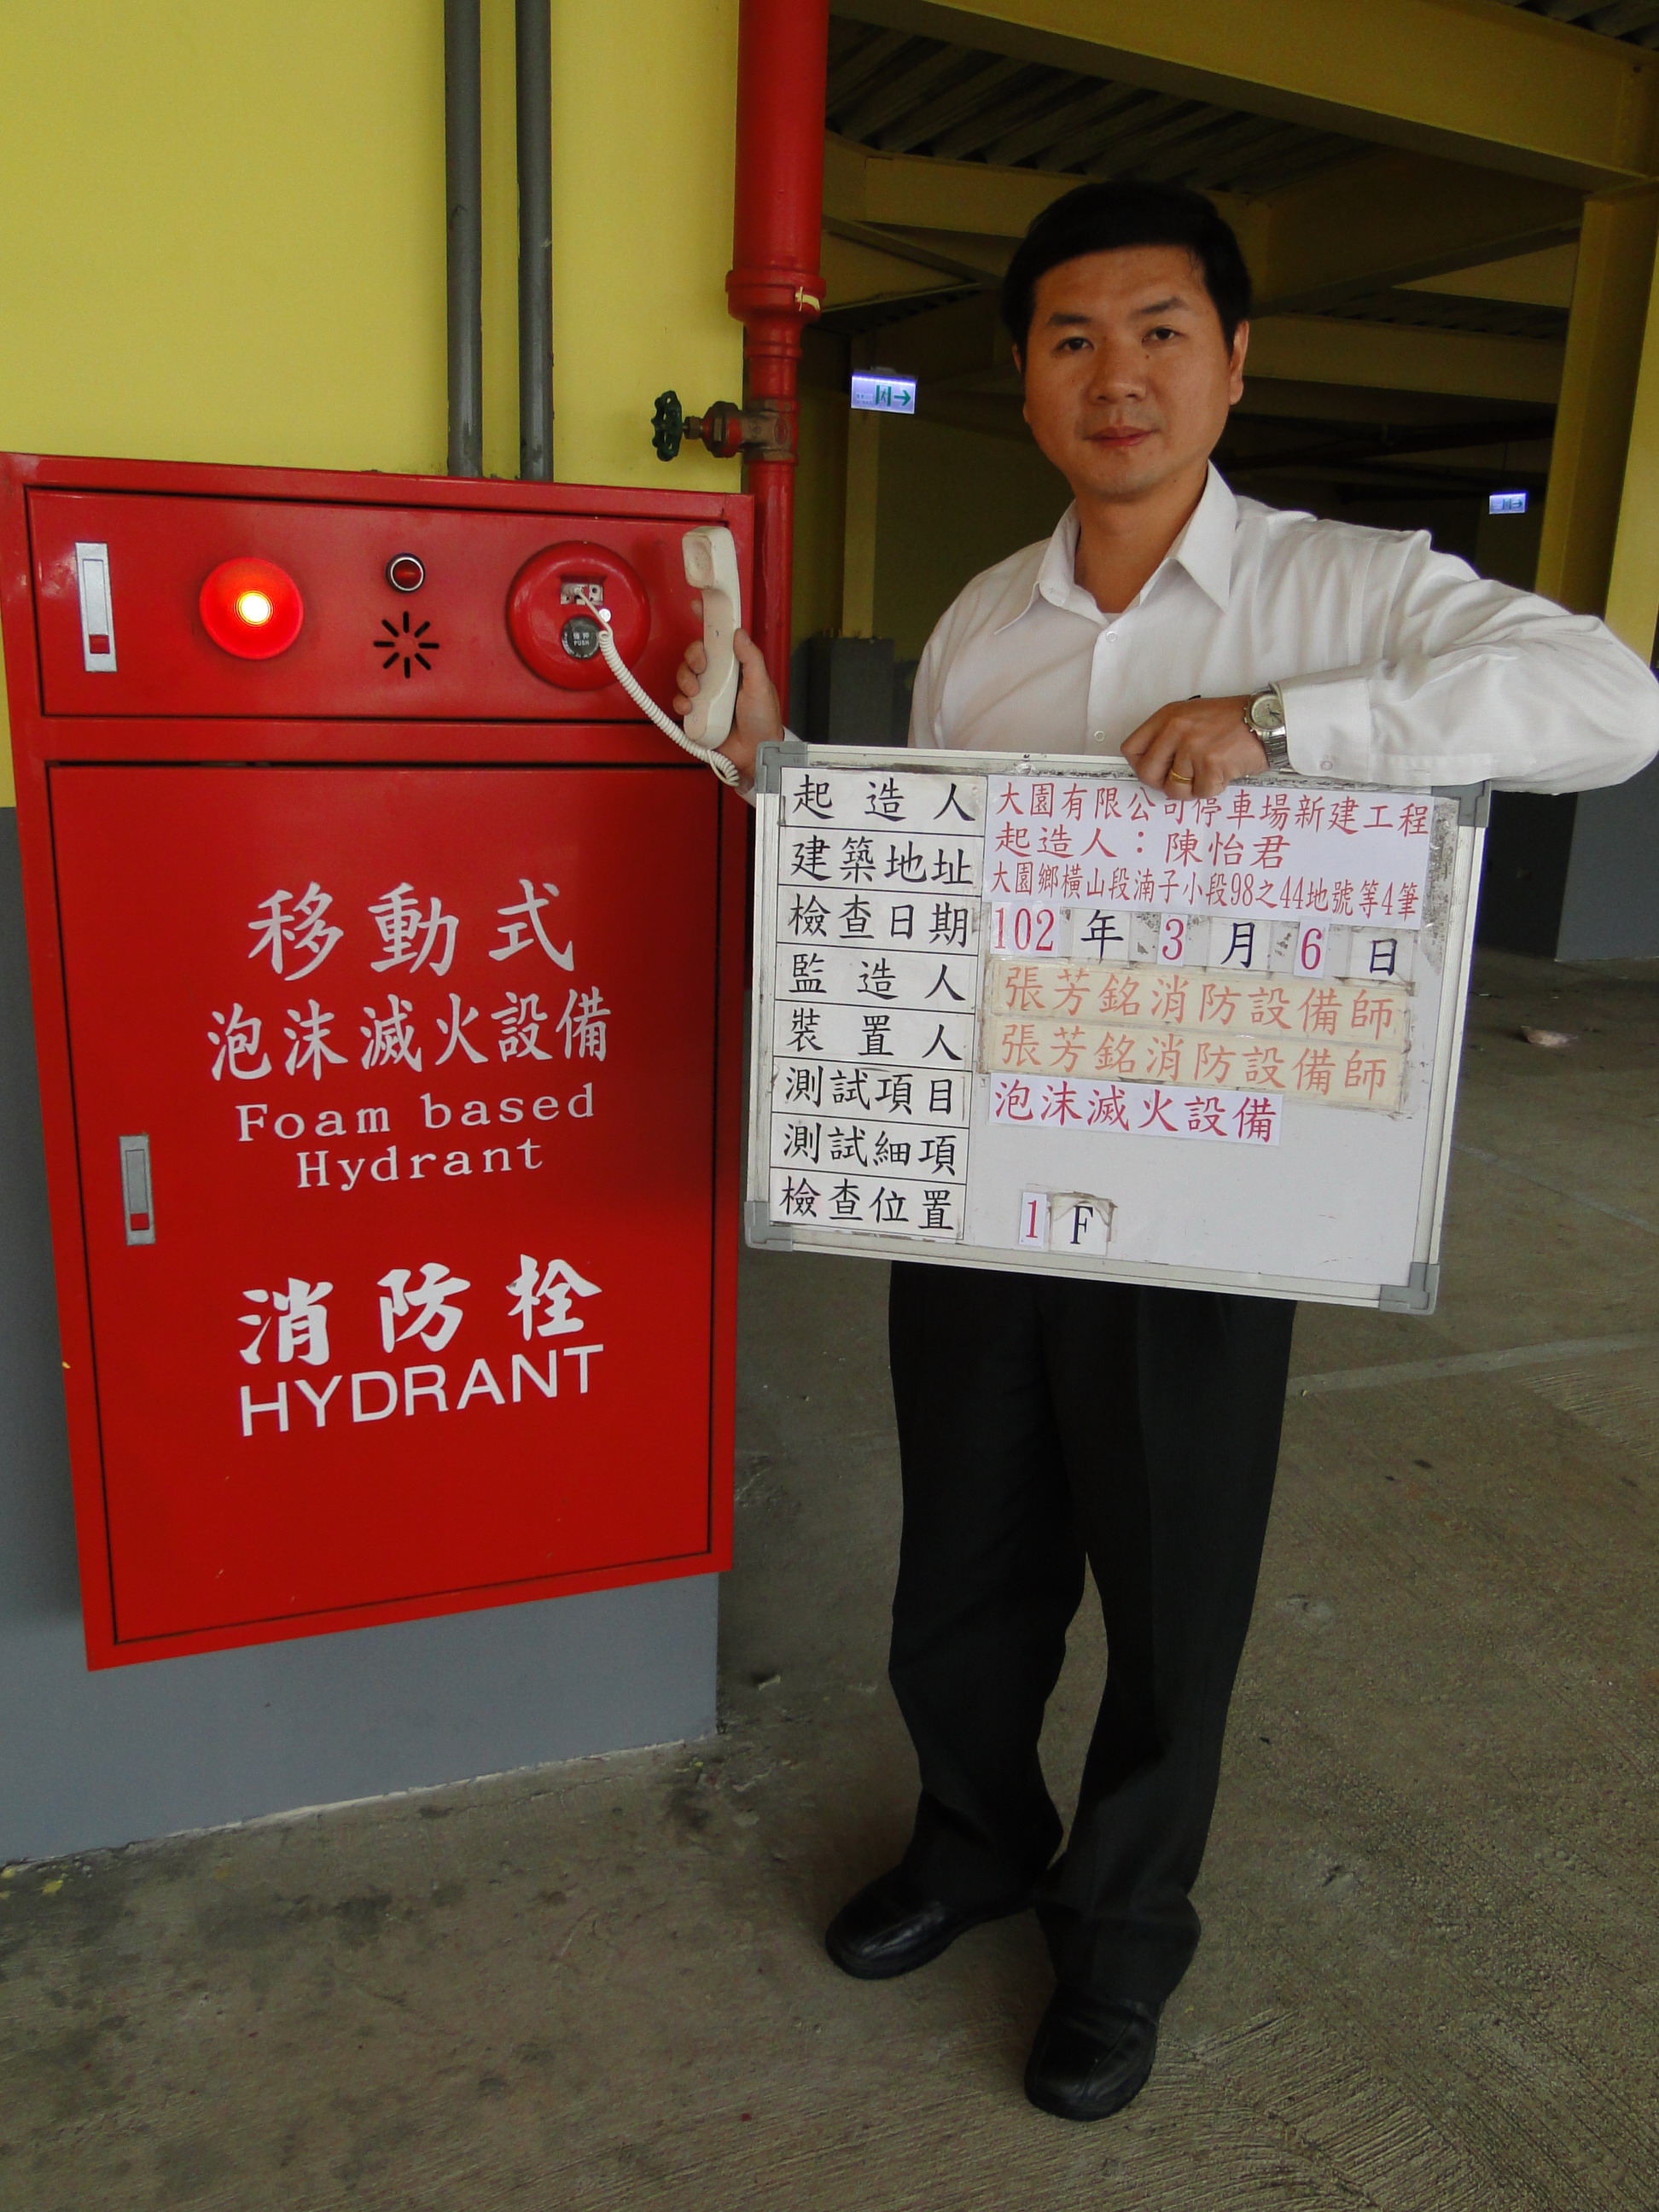 強押
PUSH
移動式
泡沫滅火設備
Foam based
Hydrant
消防栓
HYDRANT
起造人 大園有限公司停車場新建工程
起造人：陳怡君
建築地址 大園鄉橫山段湳子小段98之44地號等4筆
檢查日期 102年3月6日
監造人 張芳銘消防設備師
裝置人 張芳銘消防設備師
測試項目 泡沫滅火設備
測試細項
檢查位置 1F